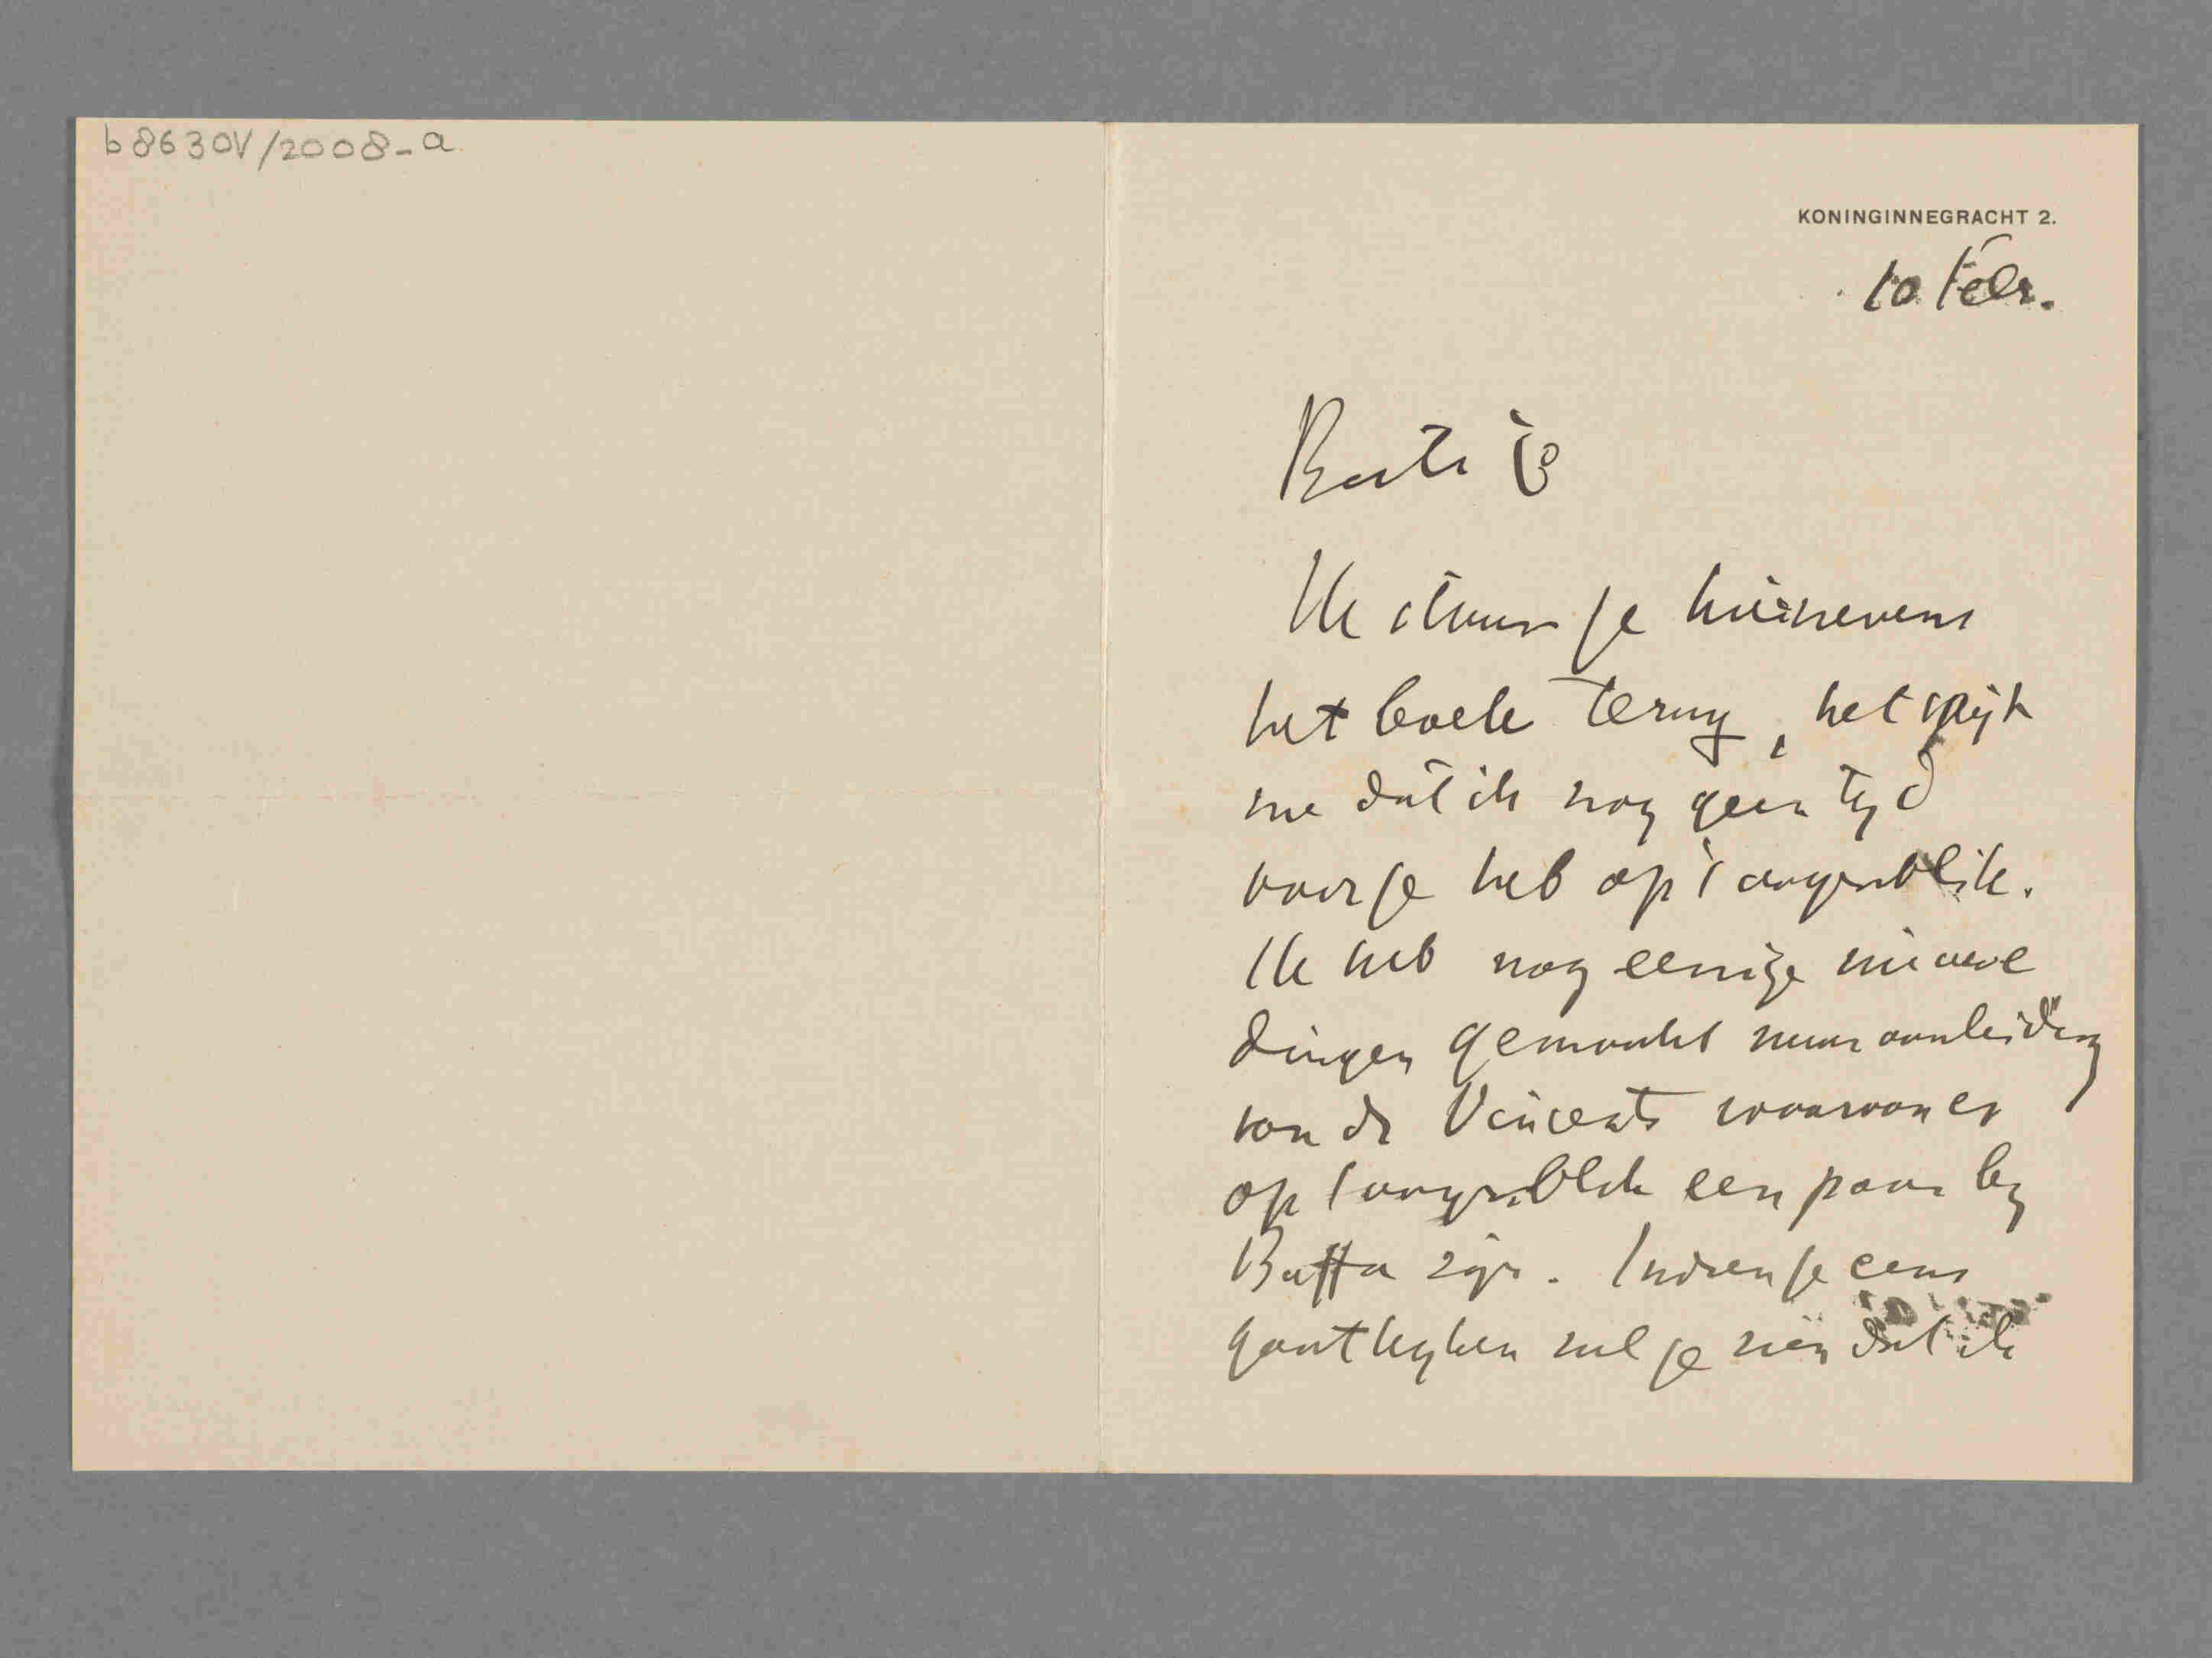 b8630V/2008-a
KONINGINNEGRACHT 2.
10 Febr.
Beste
Ik stuur je hiernevens
het boek terug, het spijt
me dat ik nog geen tijd
voor je heb op 't oogenblik.
Ik heb nog eenige nieuwe
dingen gemaakt naar aanleiding
van de Vincents waarvan er
op 't oogenblik een paar bij
Buffa zijn. Indien je eens
gaat kijken zul je zien dat ik